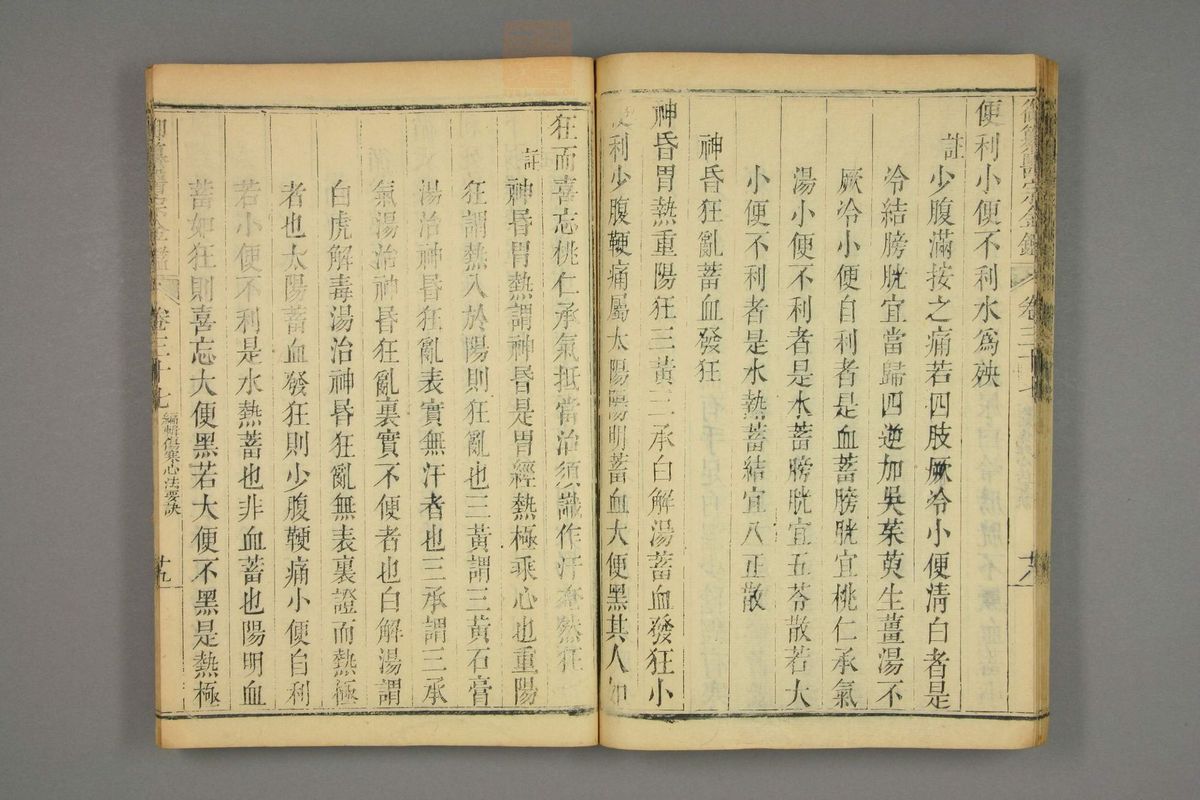 御纂醫宗金鑑 卷三十七 廿八
便利小便不利水為殃
註
少腹滿按之痛若四肢厥冷小便清白者是
冷結膀胱宜當歸四逆加吳茱萸生薑湯不
厥冷小便自利者是血蓄膀胱宜桃仁承氣
湯小便不利者是水蓄膀胱宜五苓散若大
小便不利者是水熱蓄結宜八正散
神昏狂亂蓄血發狂
神昏胃熱重陽狂三黃三承白解湯蓄血發狂小
便利少腹鞕痛屬太陽陽明蓄血大便黑其人如
狂而喜忘桃仁承氣抵當治須識作汗奄然狂
註
神昏胃熱謂神昏是胃經熱極乘心也重陽
狂謂熱入於陽則狂亂也三黃謂三黃石膏
湯治神昏狂亂表實無汗者也三承謂三承
氣湯治神昏狂亂裏實不便者也白解湯謂
白虎解毒湯治神昏狂亂無表裏證而熱極
者也太陽蓄血發狂則少腹鞕痛小便自利
若小便不利是水熱蓄也非血蓄也陽明血
蓄如狂則喜忘大便黑若大便不黑是熱極
御纂醫宗金鑑 卷三十七 編輯傷寒心法要訣 廿九